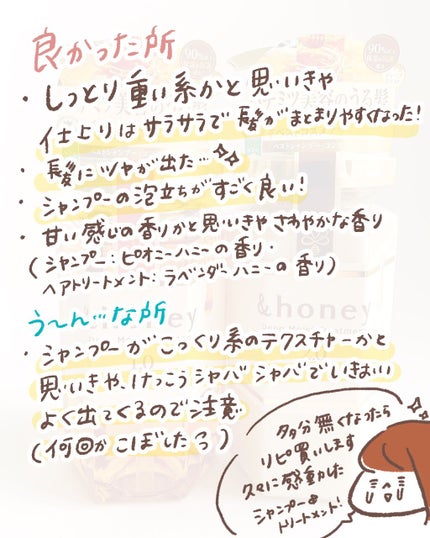 良かった所
・しっとり重い系かと思いきや
仕上りはサラサラで髪がまとまりやすくなった!
・髪にツヤが出た…✨
・シャンプーの泡立ちがすごく良い!
・甘い感じの香りかと思いきやさわやかな香り
(シャンプー:ピオニーハニーの香り・
ヘアトリートメント:ラベンダーハニーの香り)
う〜ん…な所
・シャンプーがこっくり系のテクスチャーかと
思いきや、けっこうシャバシャバでいきおい
よく出てくるので注意
(何回かこぼしたっ)
多分無くなったら
リピ買いします
久々に感動した
シャンプー&
トリートメント!
&honey